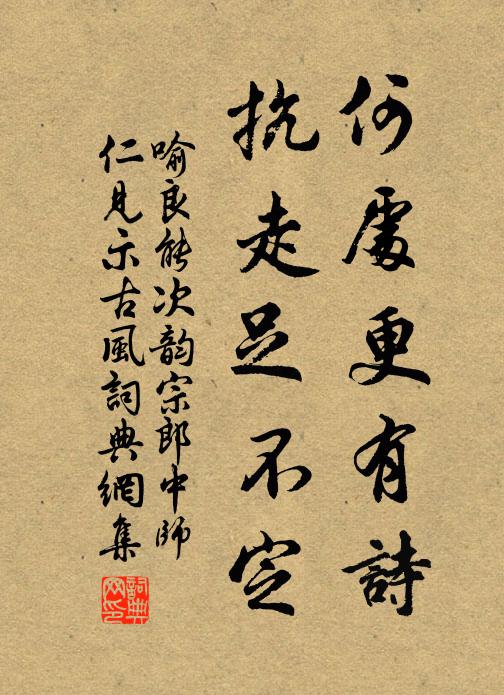 何處更有詩
抗走足不定
喻良能次韵宗郎中師
仁見示古風詞典網集